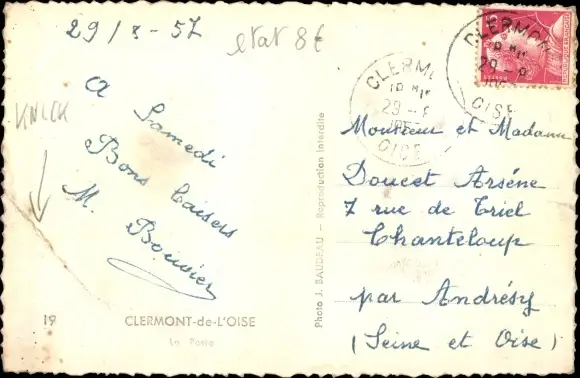 29/8-57
etat 8€
KNICK
A Samedi
Bons baisers
M. Bouvier
19 CLERMONT-de-L'OISE
La Poste
Photo J. BAUDEAU - Reproduction Interdite
CLERMON
29 - 8
OISE
CLERM
29 - 8
OISE
Monsieur et Madame
Doucet Arsène
7 rue de Triel
Chanteloup
par Andrésy
(Seine et Oise)